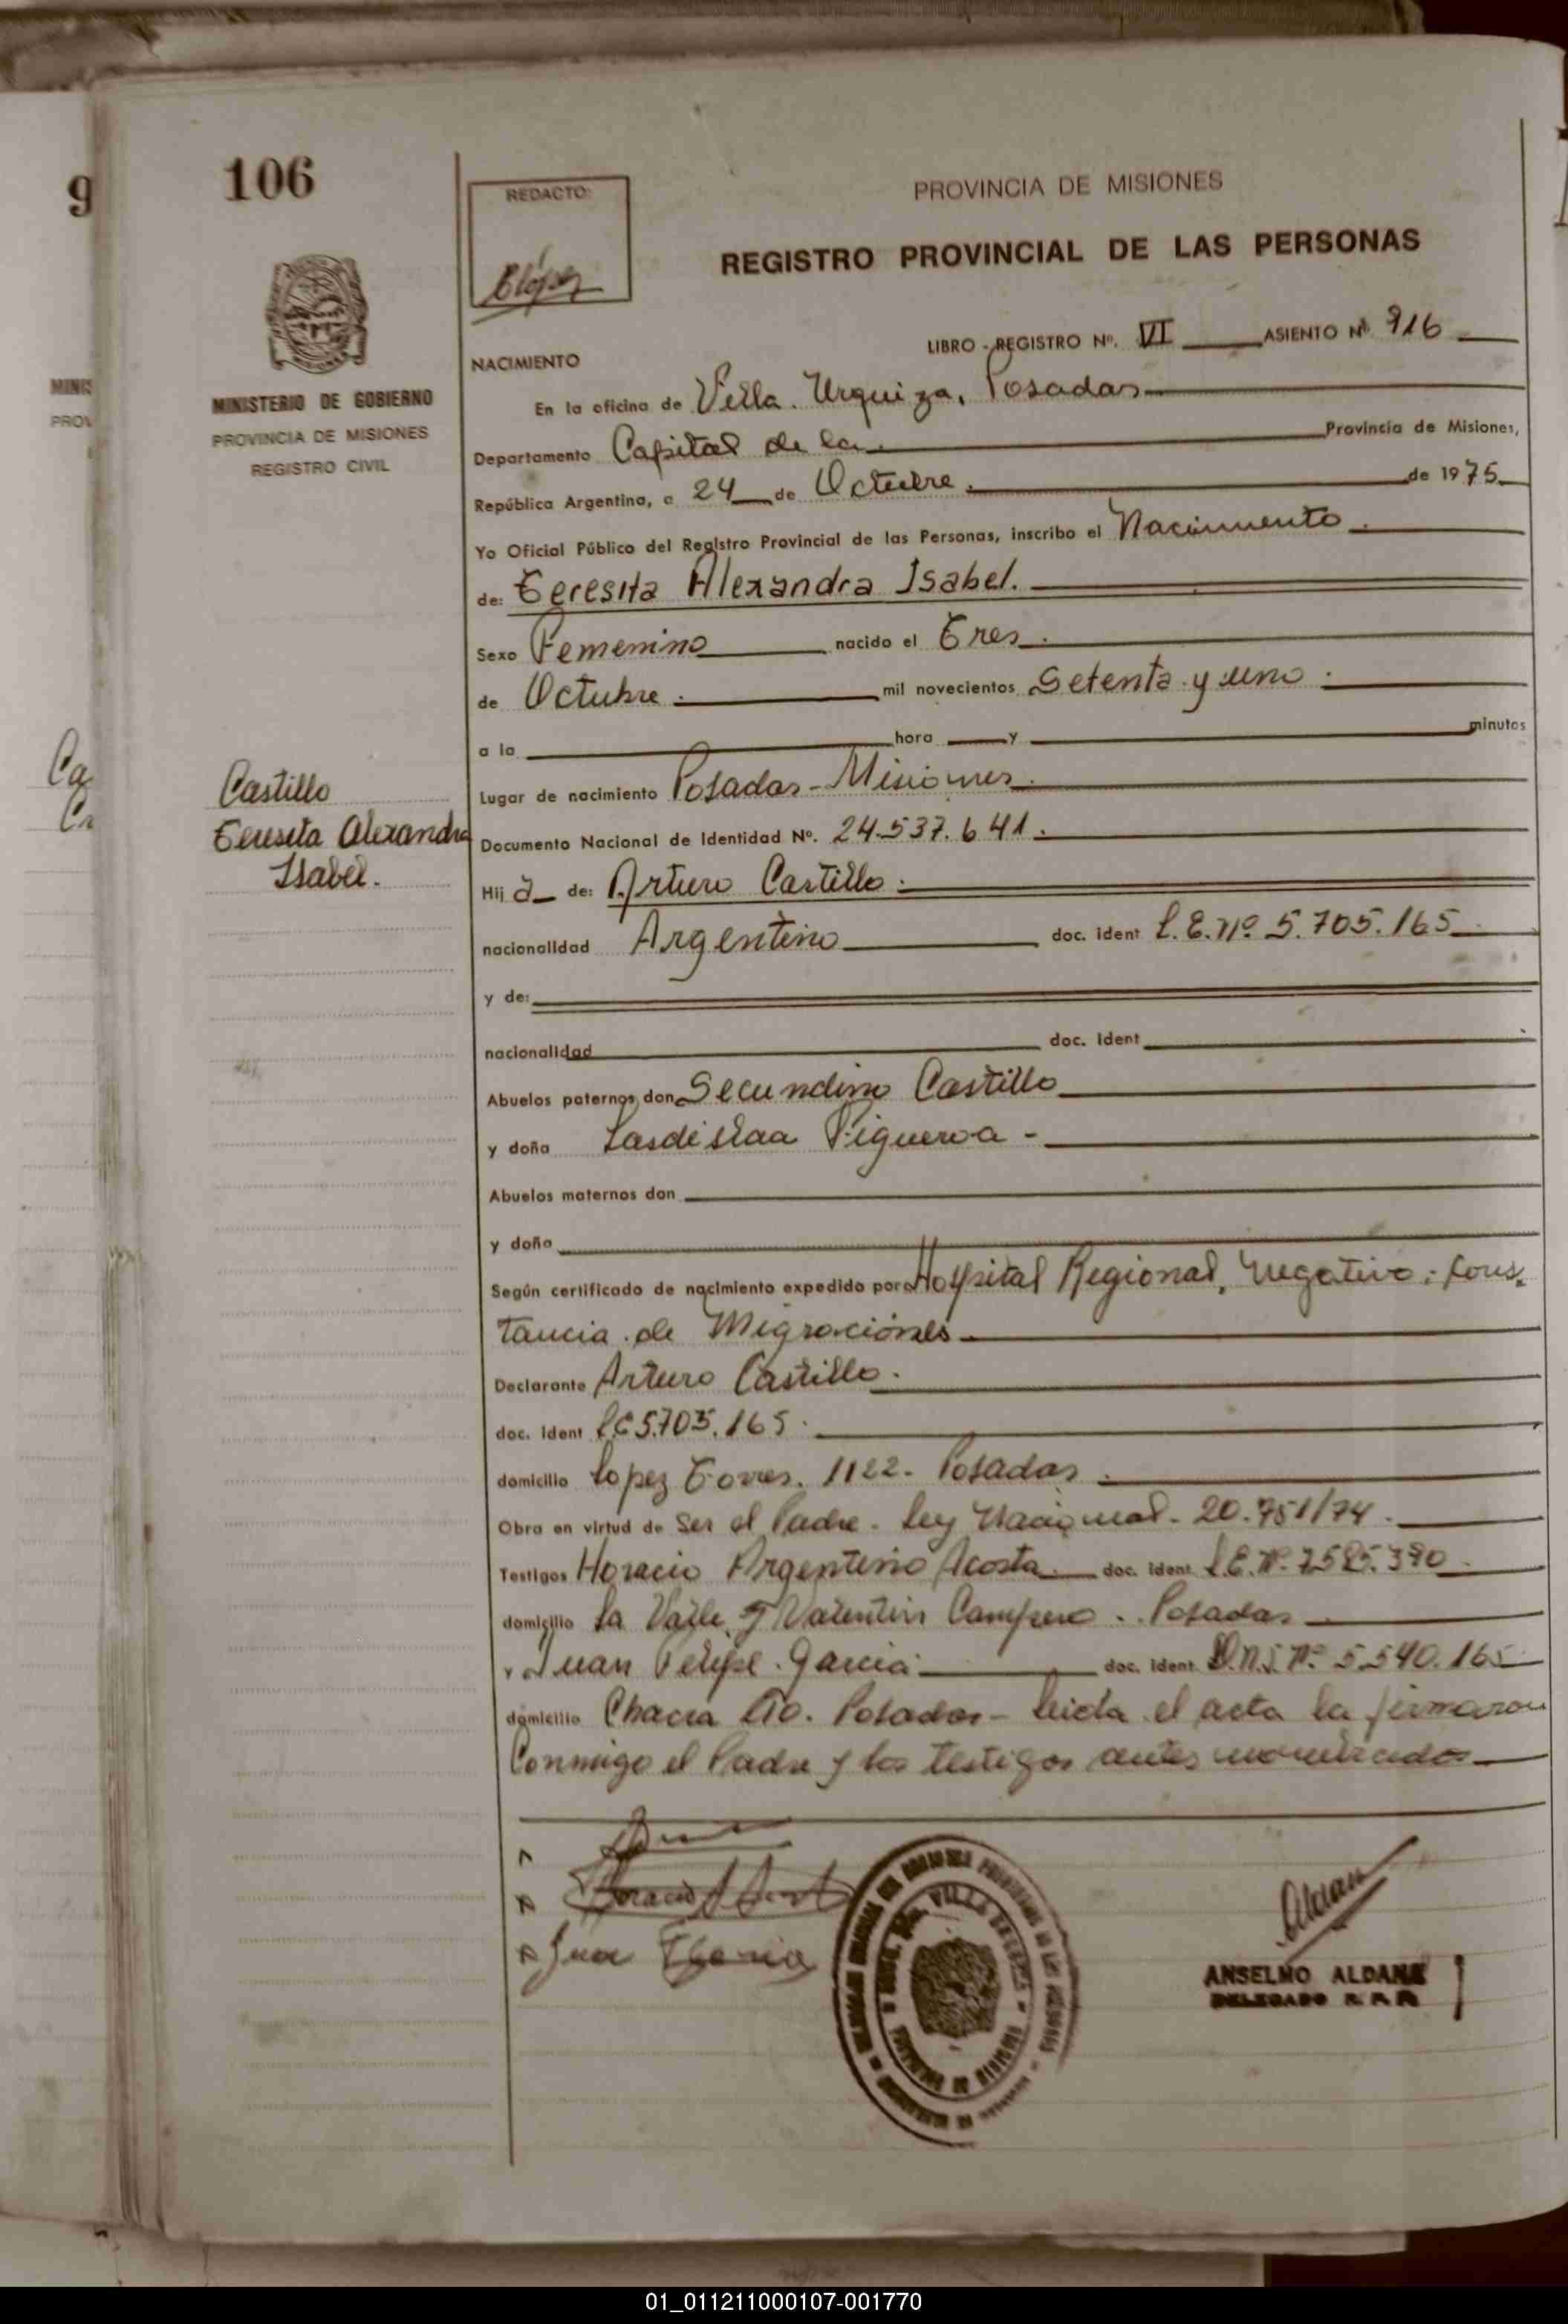 106
REDACTO:
PROVINCIA DE MISIONES
REGISTRO PROVINCIAL DE LAS PERSONAS
LIBRO - REGISTRO Nº. VI ASIENTO Nº 916
MINISTERIO DE GOBIERNO
PROVINCIA DE MISIONES
REGISTRO CIVIL
NACIMIENTO
En la oficina de Villa Urquiza, Posadas
Departamento Capital de la Provincia de Misiones,
República Argentina, a 24 de Octubre de 1975
Yo Oficial Público del Registro Provincial de las Personas, inscribo el Nacimiento
de: Teresita Alexandra Isabel.
Sexo Femenino nacido el Tres
de Octubre mil novecientos Setenta y uno
a la hora y minutos
Lugar de nacimiento Posadas - Misiones
Castillo
Teresita Alexandra
Isabel.
Documento Nacional de Identidad Nº. 24.537.641
Hij a de: Arturo Castillo
nacionalidad Argentino doc. ident L.E. Nº 5.705.165
y de:
nacionalidad doc. ident
Abuelos paternos don Secundino Castillo
y doña Lasdislaa Figueroa -
Abuelos maternos don
y doña
Según certificado de nacimiento expedido por Hospital Regional, Negativo; Cons-
tancia de Migraciones
Declarante Arturo Castillo
doc. ident L.E 5.705.165
domicilio Lopez Torres. 1122 - Posadas
Obra en virtud de Ser el Padre - Ley Nacional - 20.751/74
Testigos Horacio Argentino Acosta doc. ident L.E. Nº
domicilio La Valle y Valentin Campero - Posadas
y Juan Felipe Garcia doc. ident D.N.I. Nº 5.540.165
domicilio Chacra Posadas - Leida el acta la firmaron
Conmigo el Padre y los testigos antes nombrados
ANSELMO ALDANA
DELEGADO R. P. P.
01_011211000107-001770